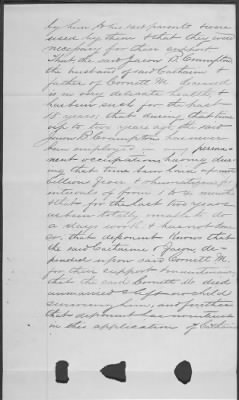 by him & his said parents & were
used by them & that they were
necessary for their support
That the said Jason D. Crumpton
the husband of said Catharine &
father of Cornett M. deceased
is in very delicate health &
has been such for the last
18 years; that during that time
up to two years ago the said
Crumpton has never
been employed in any permanent
occupation, having during
that time been
at
intervals of from 1 to 2 months
& that for the last two years
has been totally unable to do
a days work & has not done
so, that deponent knows that
the said Catharine & Jason depended
upon said Cornett M.
for their support & maintenance,
that the said Cornett M. died
unmarried & left no child
surviving him, and further
that deponent has no interest
in this application of Catharine